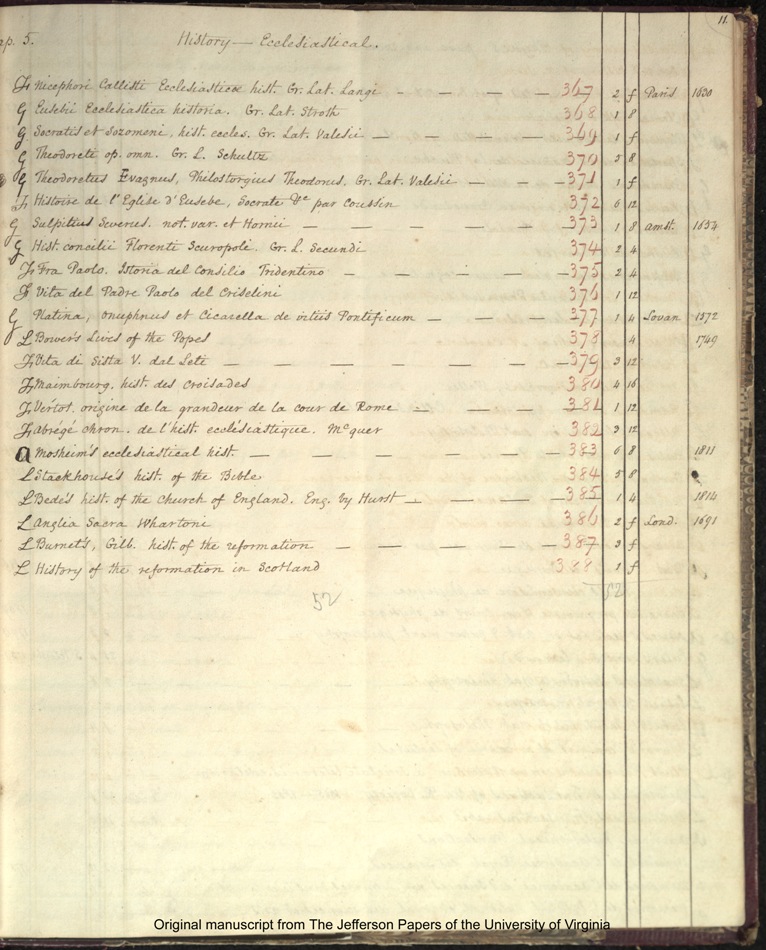 11.
ap. 5. History — Ecclesiastical.
Nicephori Callisti Ecclesiasticæ hist. Gr. Lat. Langi — — — — 367 2 f Paris 1630
G Eusebii Ecclesiastica historia. Gr. Lat. Stroth 368 1 8
G Socratis et Sozomeni, hist. eccles. Gr. Lat. Valesii — — — — 369 1 f
G Theodoreti op. omn. Gr. L. Schultz 370 5 8
G Theodoretus Evagrius, Philostorgius Theodorus. Gr. Lat. Valesii — — — 371 1 f
Histoire de l'Eglise d'Eusebe, Socrate &c par Coussin 372 6 12
G Sulpitius Severus. not. var. et Hornii — — — — — 373 1 8 Amst. 1654
G Hist. concilii Florenti Scuropoli. Gr. L. Secundi 374 2 4
Fra Paolo. Istoria del Consilio Tridentino — — — — — 375 2 4
Vita del Padre Paolo del Griselini 376 1 12
G Platina, Onuphrius et Cicarella de vitiis Pontificum — — — — 377 1 4 Lovan 1572
L Bower's Lives of the Popes 378 4 1749
Vita di Sisto V. dal Leti — — — — — — — 379 3 12
Maimbourg. hist. des Croisades 380 4 16
Vertot. origine de la grandeur de la cour de Rome — — — — 381 1 12
Abregé chron. de l'hist. ecclésiastique. Mcquer 382 3 12
a Mosheim's ecclesiastical hist. — — — — — — — 383 6 8 1811
L Stackhouse's hist. of the Bible 384 5 8
L Bede's hist. of the church of England. Eng. by Hurst — — — — 385 1 4 1814
L Anglia Sacra Whartoni 386 2 f Lond. 1691
L Burnet's, Gilb. hist. of the reformation — — — — — 387 3 f
L History of the reformation in Scotland 388 1 f
52 52
Original manuscript from The Jefferson Papers of the University of Virginia